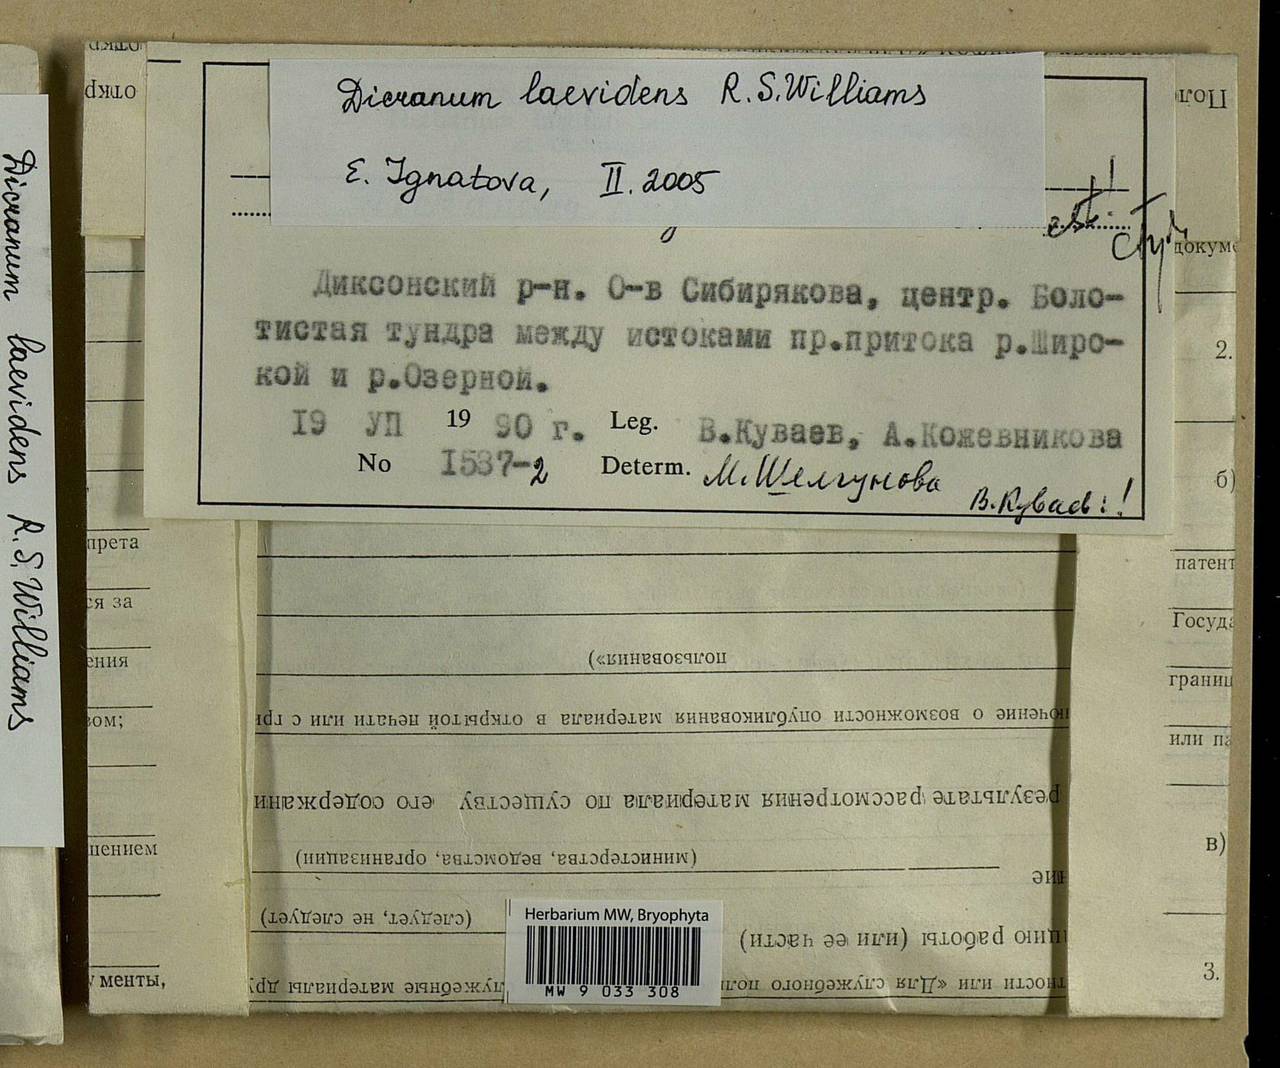 Dicranum laevidens R.S.Williams
E. Ignatova, II. 2005
Диксонский р-н. О-в Сибирякова, центр. Боло-
тистая тундра между истоками пр.притока р.Широ-
кой и р.Озерной.
I9 УП 19 90 г. Leg. В.Куваев, А.Кожевникова
No I537-2 Determ. М.Шелгунова
Dicranum laevidens R.S.Williams
прета
ся за
ения
вом;
шением
менты,
докуме
2.
б)
патент
Госуда
границ
или па
в)
3.
пользования»)
ючение о возможности опубликования материала в открытой печати или с гри
результате рассмотрения материала по существу его содержани
(министерства, ведомства, организации)
ние
(следует, не следует)
цию работы (или ее части)
ности или «Для служебного
лужебные материалы дру
Herbarium MW, Bryophyta
MW 9 033 308